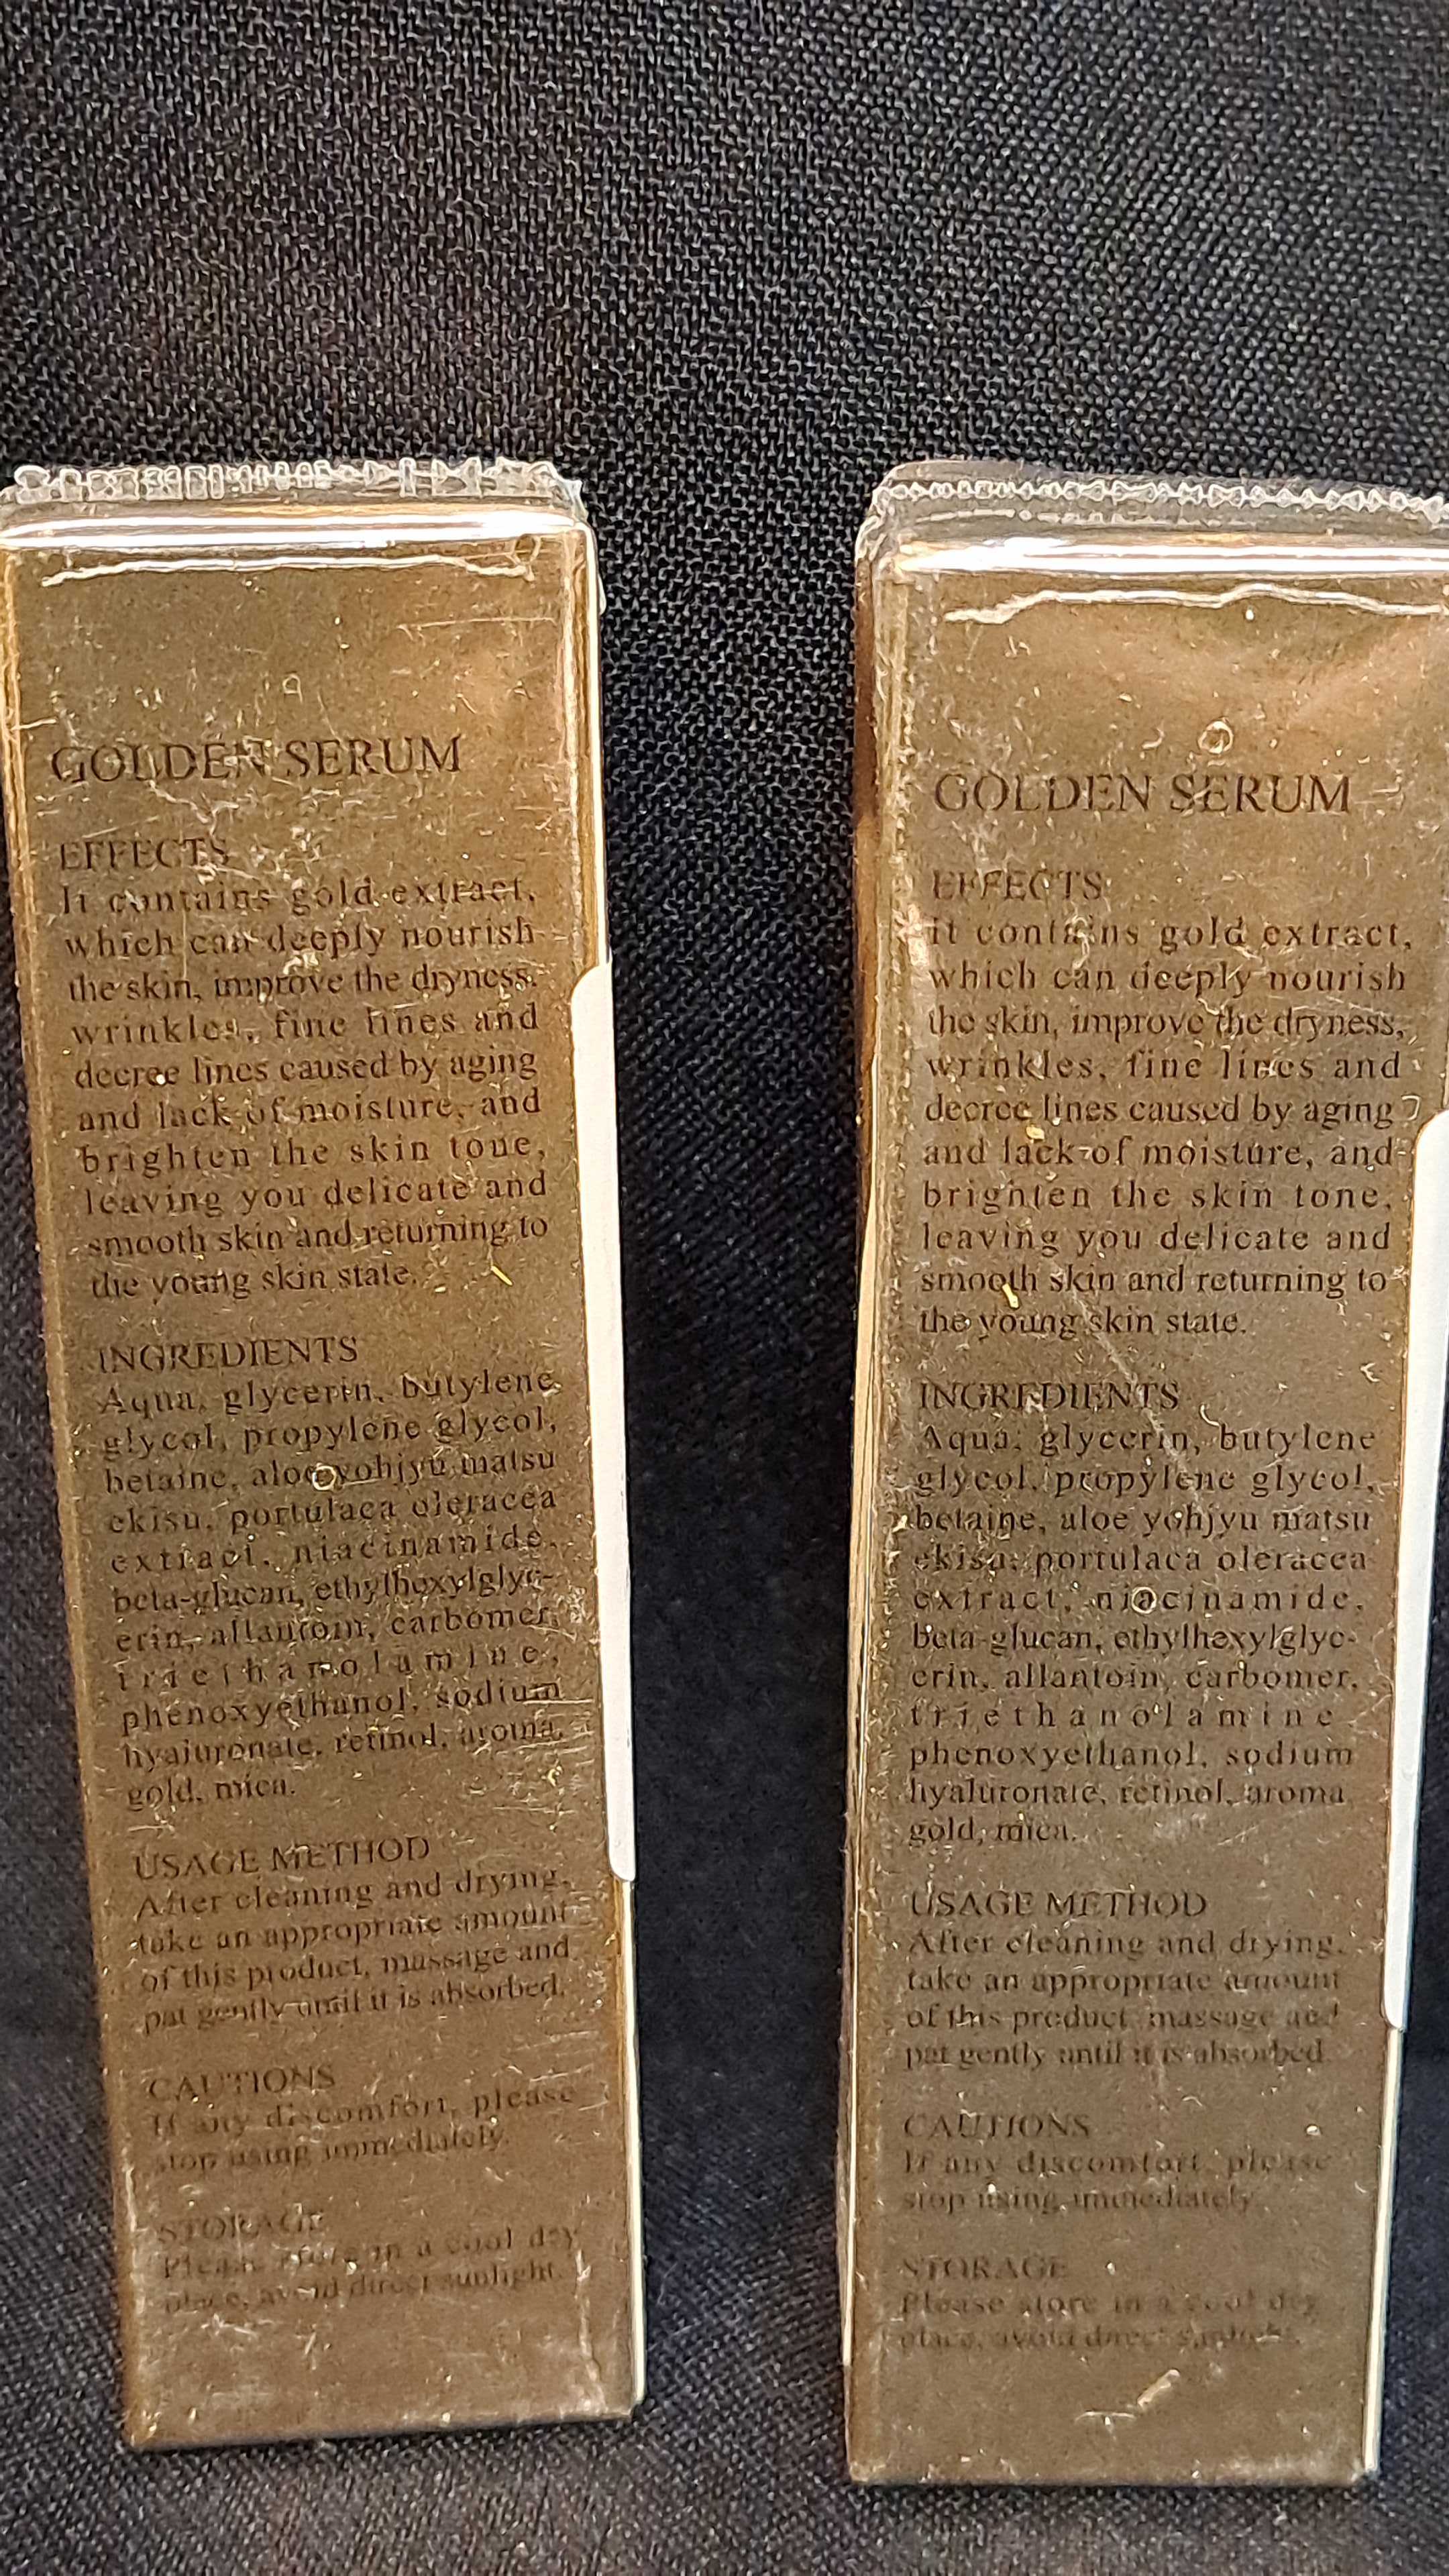 GOLDEN SERUM
EFFECTS
It contains gold extract,
which can deeply nourish
the skin, improve the dryness,
wrinkles, fine lines and
decree lines caused by aging
and lack of moisture, and
brighten the skin tone,
leaving you delicate and
smooth skin and returning to
the young skin state.
INGREDIENTS
Aqua, glycerin, butylene
glycol, propylene glycol,
betaine, aloe yohjyu matsu
ekisu, portulaca oleracea
extract, niacinamide,
beta-glucan, ethylhexylglyc-
erin, allantoin, carbomer,
triethanolamine,
phenoxyethanol, sodium
hyaluronate, retinol, aroma,
gold, mica.
USAGE METHOD
After cleaning and drying,
take an appropriate amount
of this product, massage and
pat gently until it is absorbed.
CAUTIONS
If any discomfort, please
stop using immediately.
STORAGE
Please store in a cool dry
place, avoid direct sunlight.
GOLDEN SERUM
EFFECTS
It contains gold extract,
which can deeply nourish
the skin, improve the dryness,
wrinkles, fine lines and
decree lines caused by aging
and lack of moisture, and
brighten the skin tone,
leaving you delicate and
smooth skin and returning to
the young skin state.
INGREDIENTS
Aqua, glycerin, butylene
glycol, propylene glycol,
betaine, aloe yohjyu matsu
ekisu, portulaca oleracea
extract, niacinamide,
beta-glucan, ethylhexylglyc-
erin, allantoin, carbomer,
triethanolamine
phenoxyethanol, sodium
hyaluronate, retinol, aroma
gold, mica.
USAGE METHOD
After cleaning and drying,
take an appropriate amount
of this product, massage and
pat gently until it is absorbed.
CAUTIONS
If any discomfort, please
stop using immediately.
STORAGE
Please store in a cool dry
place, avoid direct sunlight.